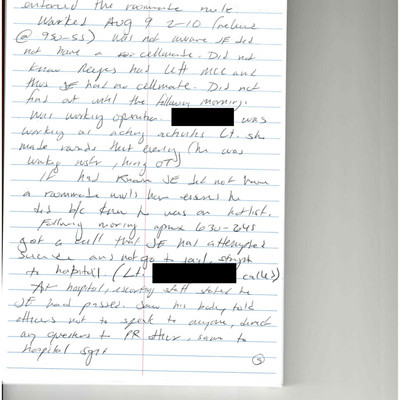 entered the roommate rule
Worked Aug 9 2-10 (relieve
@ 950-55) was not aware JE did
not have a cellmate. Did not
know Reyes had left MCC and
thus JE had no cellmate. Did not
find out until the following morning.
Was working operation. was
working as acting activities Lt. she
made rounds that evening (he was
OT)
If had known JE did not have
a roommate would have ensured he
did b/c knew he was on hotlist.
Following morning approx 630-645
got a call that JE had attempted
suicide and not go to jail, straight
to hospital. (Lt. called)
At hospital, escorting staff stated to
JE had passed. Saw his body, told
officers not to speak to anyone, direct
any questions to PR officer, same to
hospital sgt
5